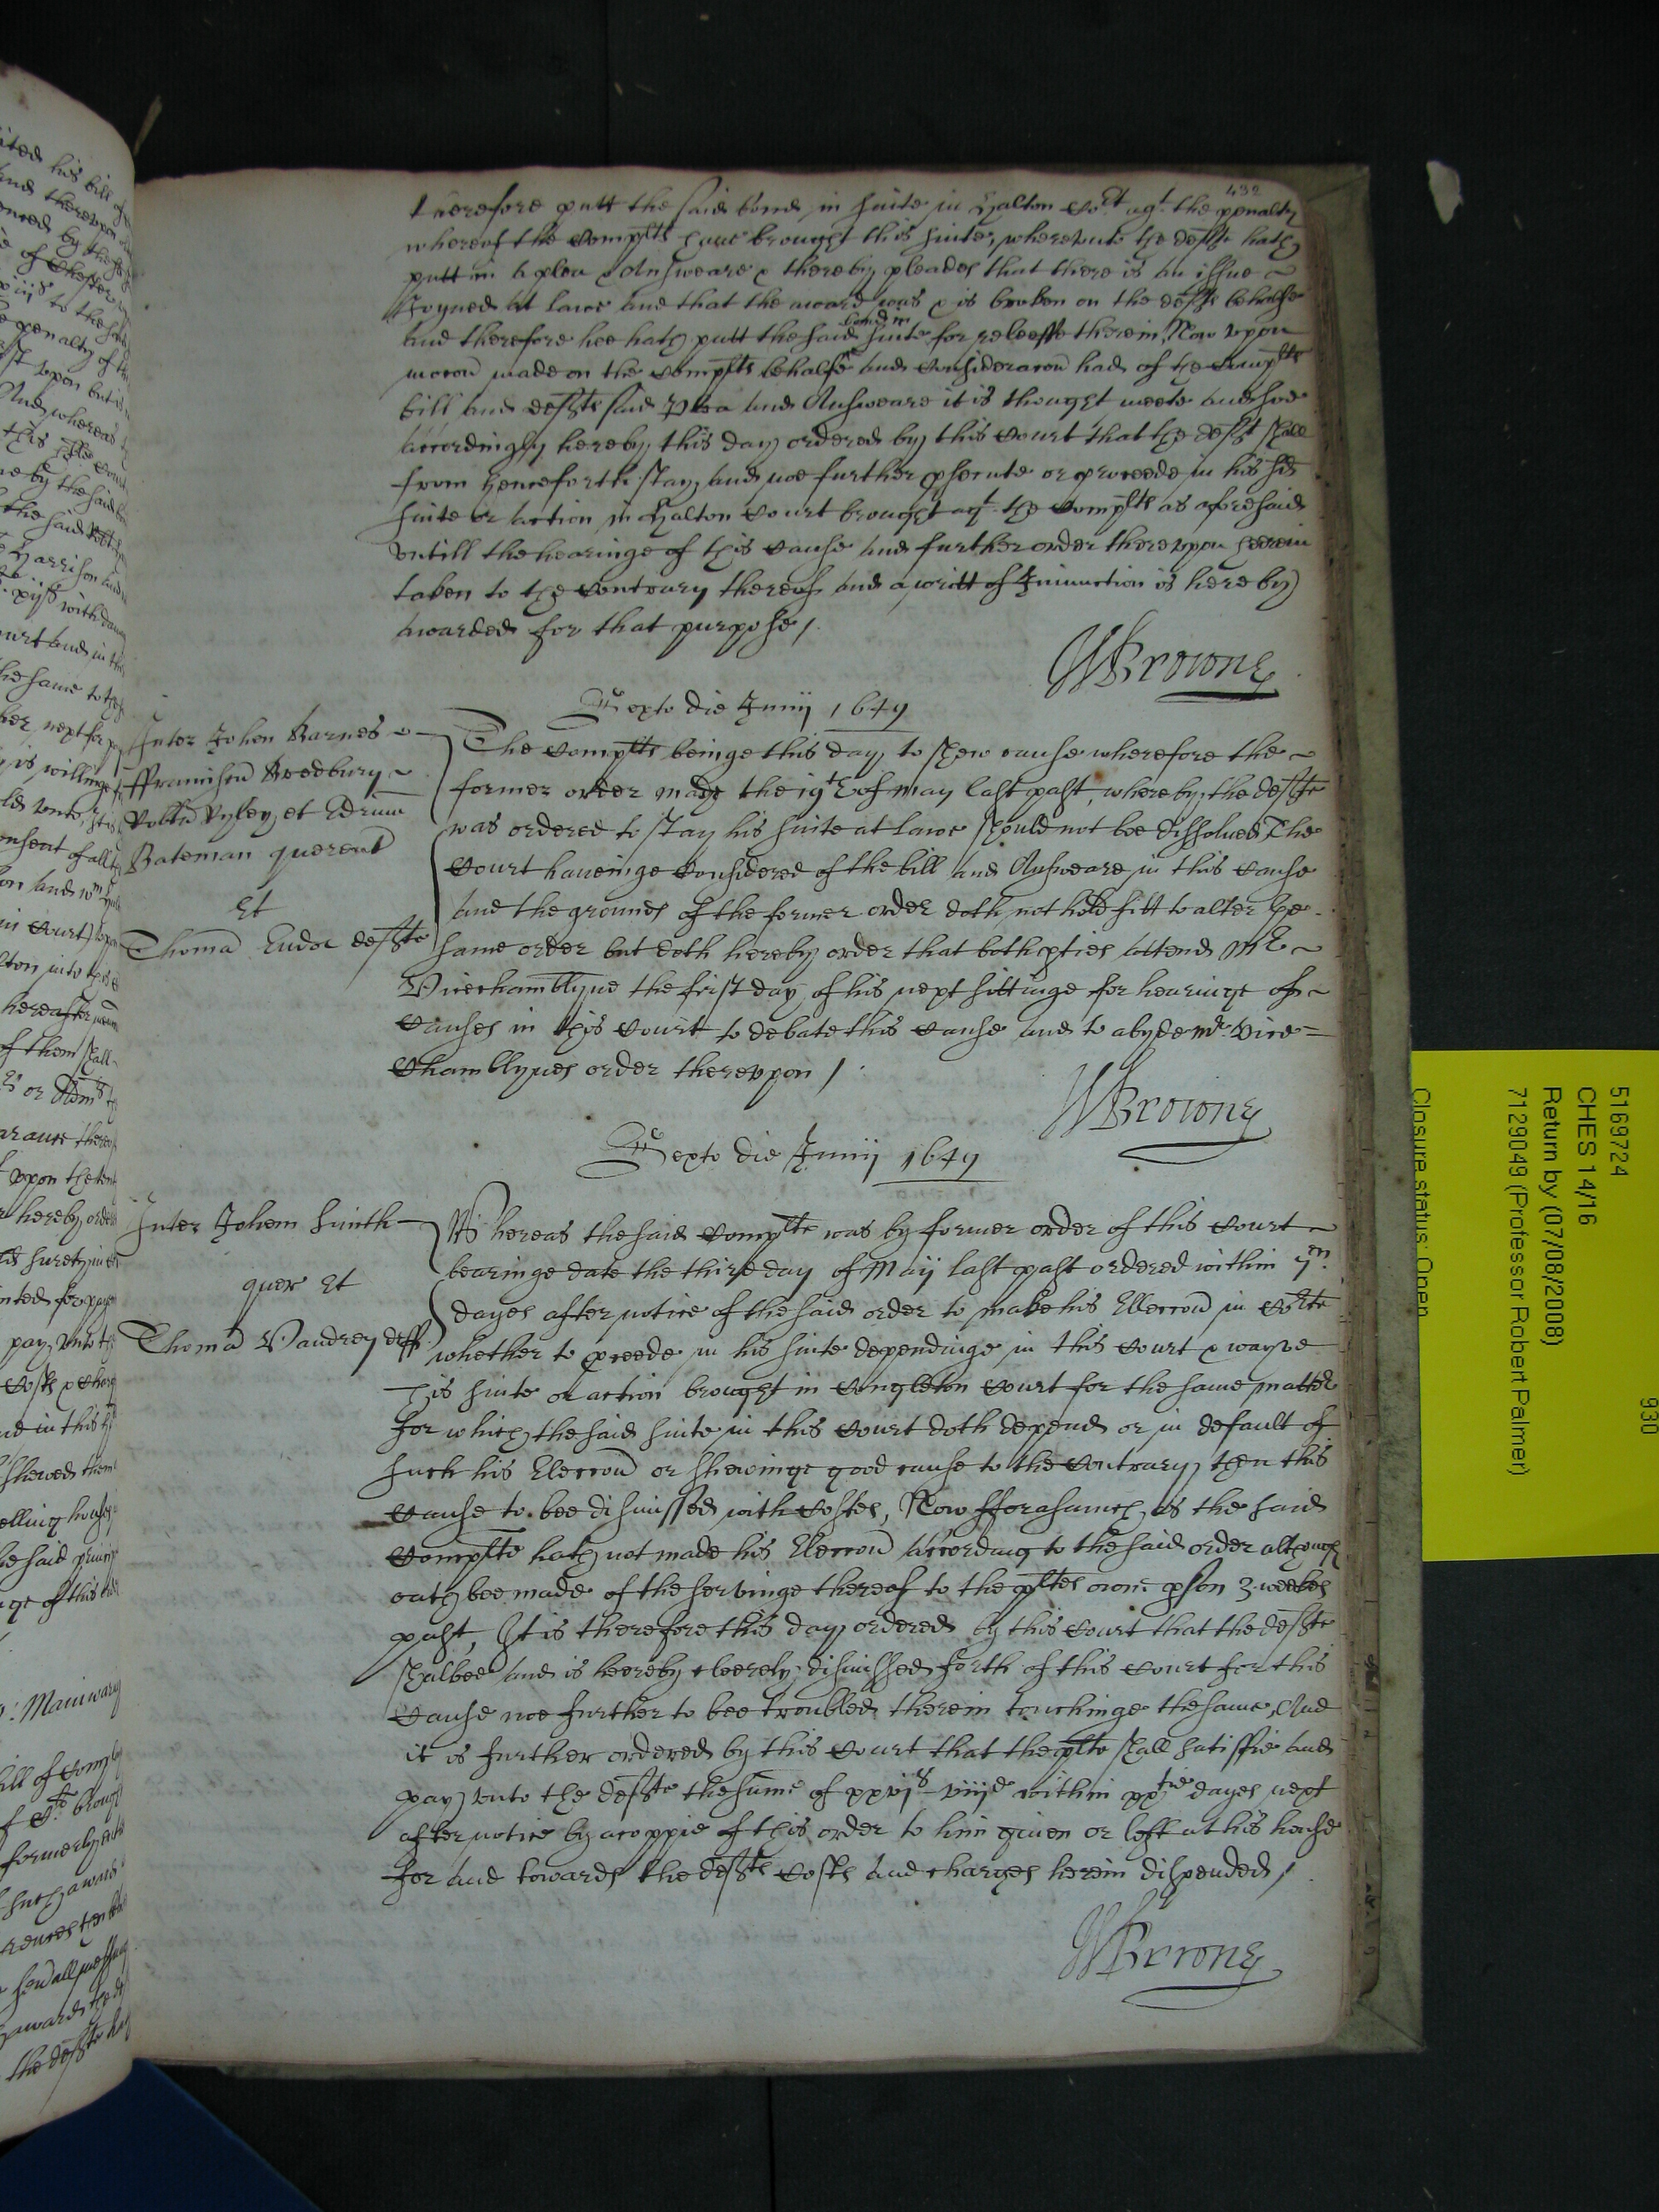 432
therefore putt the said bond in suite in Halton Co:rt agt. the penalty
whereof the Complts have brought this suite, whereunto the defte hath
putt in a plea & Answeare & thereby pleades that there is an issue
Joyned at lawe and that the award was & is broken on the defts behalfe
and therefore hee hath putt the said bond in suite for releeffe therein, Now upon
mocon made on the Complts behalfe and consideracon had of the Complts
bill and defts said Plea and Answeare it is thought meete and soe
accordingly hereby this day ordered by this Court that the deft shall
from henceforth stay and noe further psecute or proceede in his sd
suite or action in Halton Court brought agt. the Complts as aforesaid
untill the hearinge of this Cause and further order thereupon herein
taken to the Contrary thereof and a writt of Iniunction is hereby
awarded for that purpose /
WBrowne
Sexto die Junij 1649
Inter Johen Barnes
ffranciscu Bredbury
Robtu Ryley et Edrum
Bateman querent
Et
Thoma Eudoe defte
The Complts beinge this day to shew cause wherefore the
former order made the 19th of may last past, whereby the defte
was ordered to stay his suite at lawe should not bee dissolved The
Court haveinge Considered of the bill and Answeare in this Cause
and the grounds of the former order doth not hold fitt to alter the
same order but doth hereby order that both pties attend Mr
Vicechamblyne the first day of his next sittinge for hearinge of
Causes in this Court to debate this Cause and to abyde mr. Vice=
Chamblynes order thereupon /
WBrowne
Sexto die Junij 1649
Inter Johem Smith
quer Et
Thoma Vaudrey deff
Whereas the said Complte was by former order of this Court
bearinge date the third day of Maij last past ordered within 7en
dayes after notice of the said order to make his Eleccon in Corte
whether to pceede in his suite dependinge in this Court & wayve
his suite or action brought in Congleton Court for the same matter
for which the said suite in this Court doth depend or in default of
such his Eleccon or shewinge good cause to the Contrary, then this
Cause to bee dismissed with Costes, Now fforasmuch as the said
Complte hath not made his Eleccon according to the said order although
oath bee made of the servinge thereof to the pltes owne pson 3 weekes
past, It is therefore this day ordered by this Court that the defte
shalbee and is heereby cleerely dismissed forth of this Court for this
Cause noe further to bee troubled therein touchinge the same, And
it is further ordered by this Court that the plte shall satisfie and
pay unto the defte the sume of xxvjs viijd within xxtie dayes next
after notice by a coppie of this order to him given or left at his house
for and towards the defts Costs and charges herein dispended /
WBrowne
5169724
CHES 14/16
Return by (07/08/2008)
7129049 (Professor Robert Palmer)
Closure status: Open
930